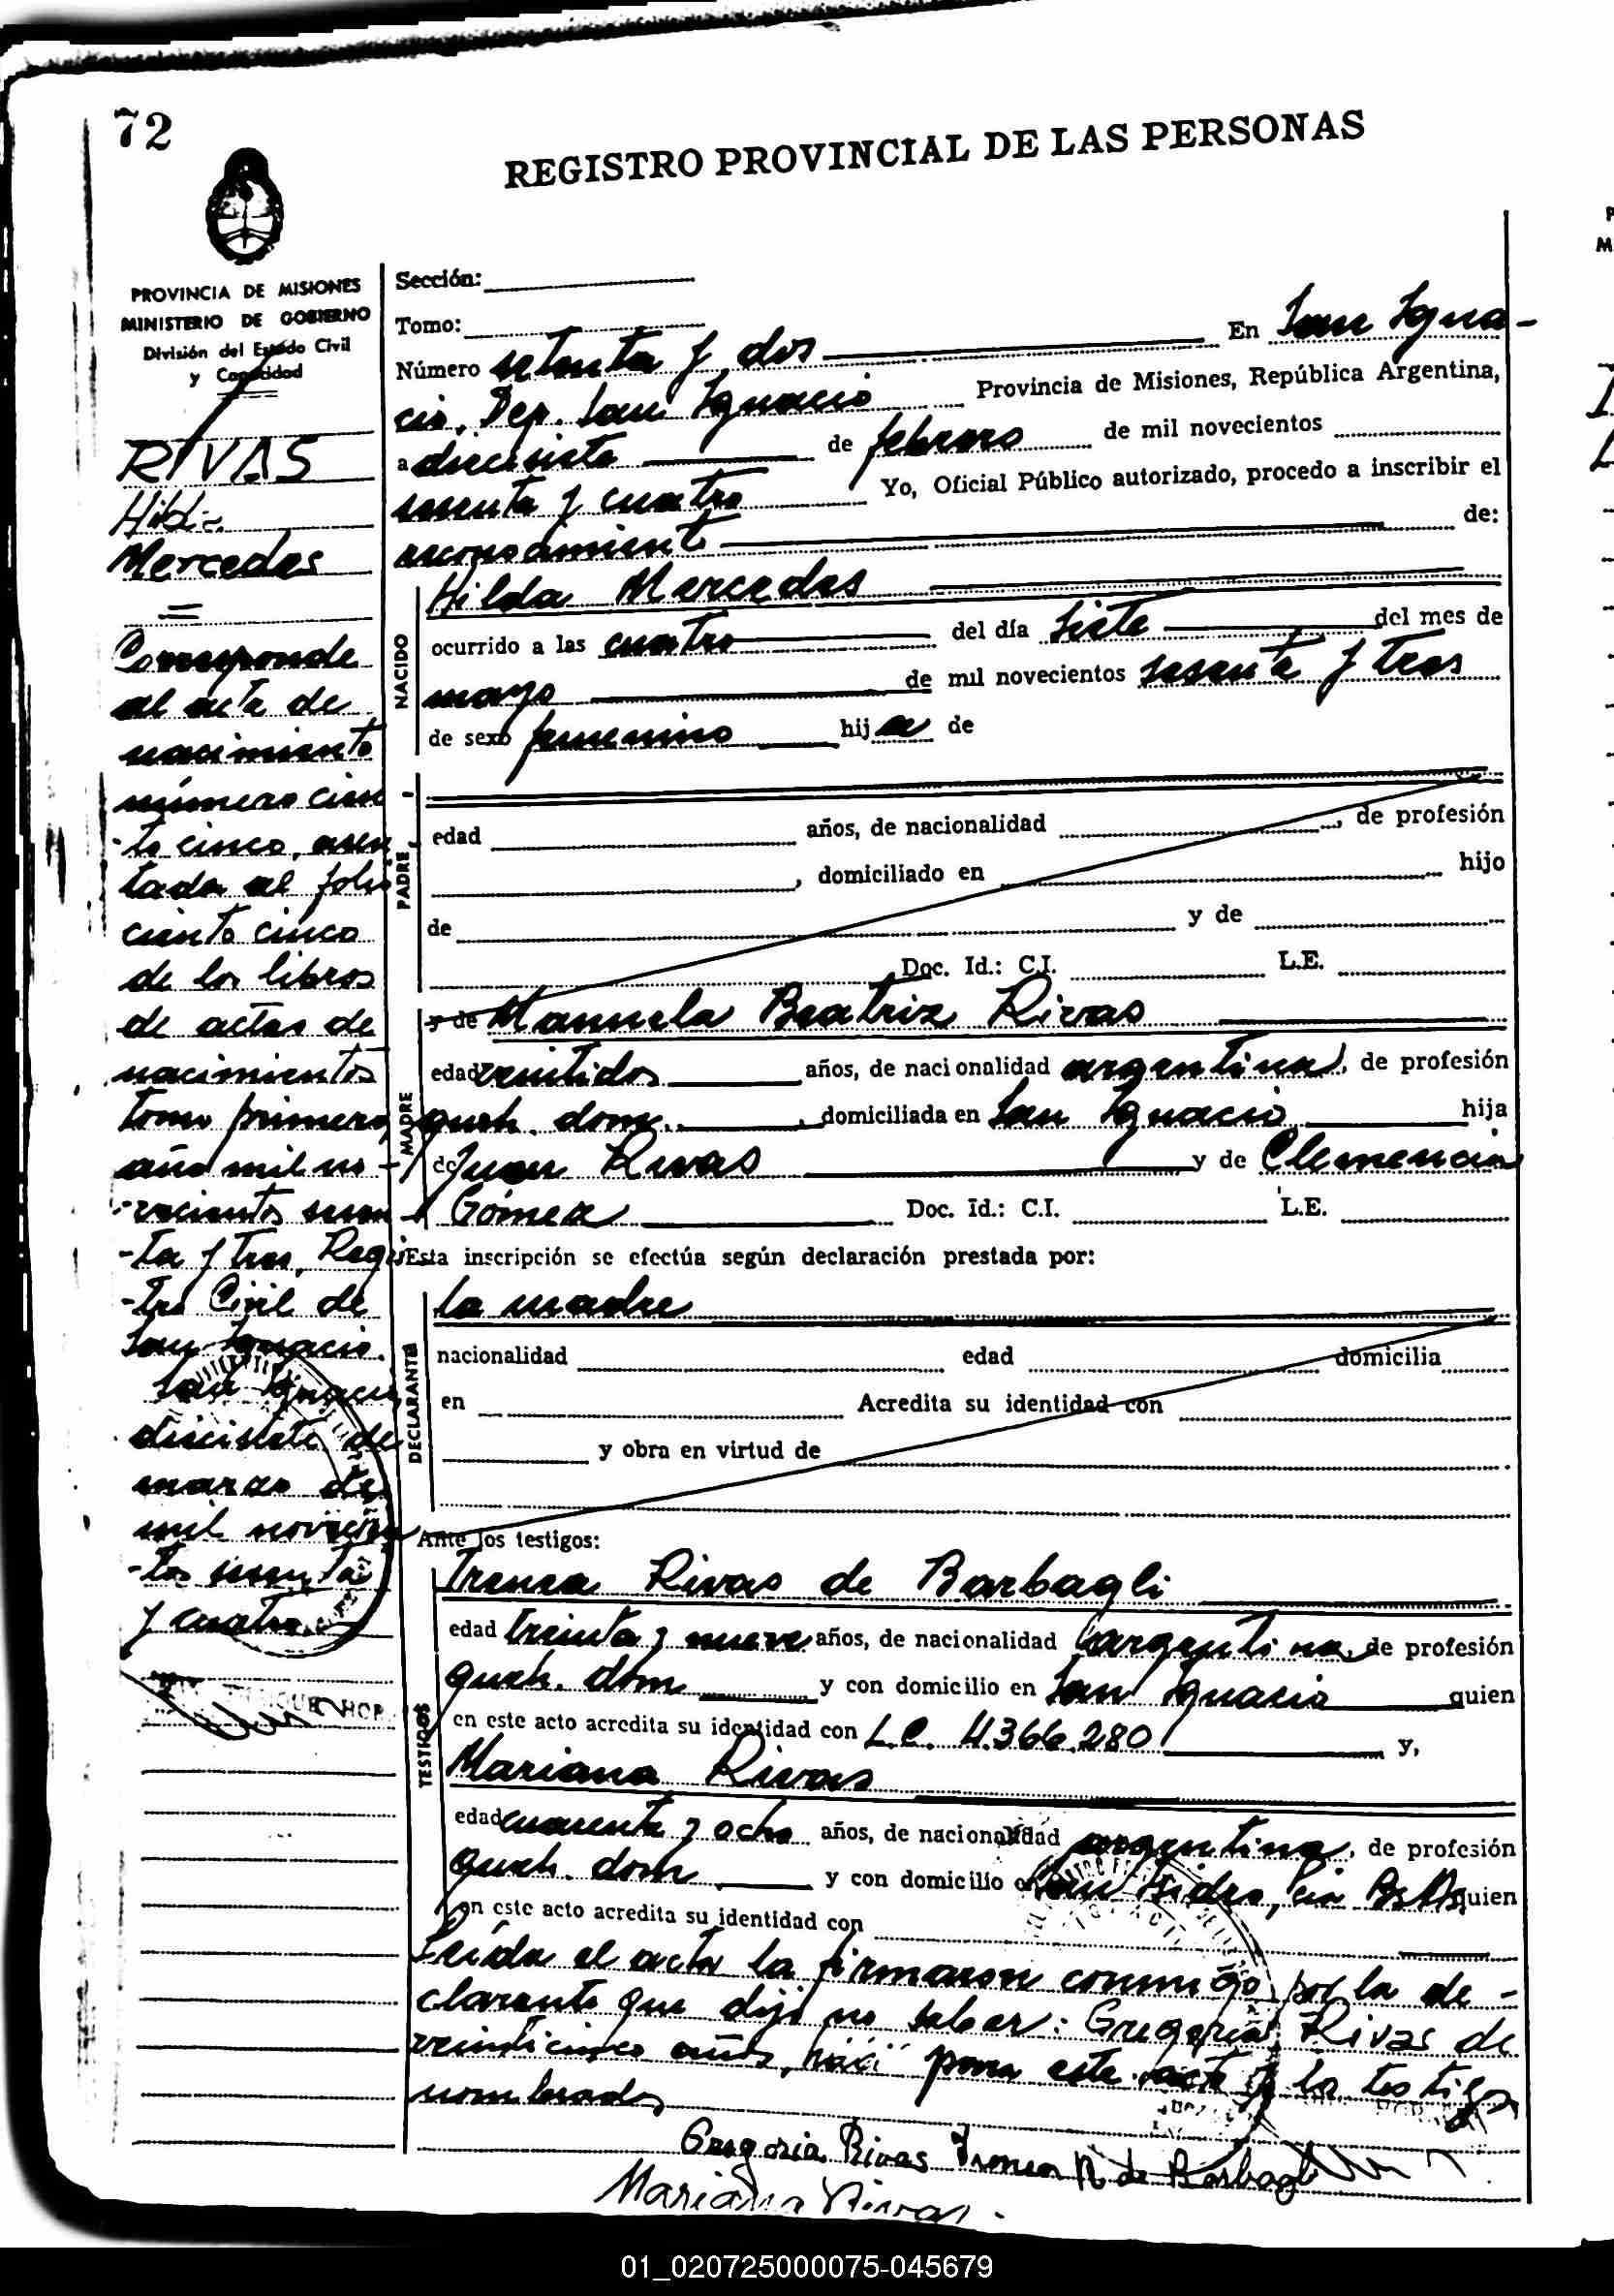 72
REGISTRO PROVINCIAL DE LAS PERSONAS
PROVINCIA DE MISIONES
MINISTERIO DE GOBIERNO
División del Estado Civil
y Capacidad
RIVAS
Hild-
Mercedes
Corresponde
al acta de
nacimiento
número cien
-to cinco, asen
tada al folio
ciento cinco
de los libros
de actas de
nacimientos
tomo primero
año mil no-
-vecientos sesen
-ta y tres, Regis
-tro Civil de
San Ignacio.
San Ignacio,
diecisiete de
marzo de
mil novecien
-tos sesenta
y cuatro.
Sección:
Tomo:
Número setenta y dos En San Igna-
cio, Dep. San Ignacio Provincia de Misiones, República Argentina,
a diecisiete de febrero de mil novecientos
sesenta y cuatro Yo, Oficial Público autorizado, procedo a inscribir el
reconocimiento de:
NACIDO
Hilda Mercedes
ocurrido a las cuatro del día siete del mes de
mayo de mil novecientos sesenta y tres
de sexo femenino hija de
PADRE
edad años, de nacionalidad , de profesión
, domiciliado en hijo
de y de
Doc. Id.: C.I. L.E.
MADRE
y de Manuela Beatriz Rivas
edad veintidos años, de nacionalidad argentina, de profesión
queh. dom. , domiciliada en San Ignacio hija
de Juan Rivas y de Clemencia
Gómez Doc. Id.: C.I. L.E.
Esta inscripción se efectúa según declaración prestada por:
DECLARANTE
la madre
nacionalidad edad domicilia
en Acredita su identidad con
y obra en virtud de
Ante los testigos:
TESTIGOS
Irenea Rivas de Barbagli
edad treinta y nueve años, de nacionalidad argentina, de profesión
queh. dom y con domicilio en San Ignacio quien
en este acto acredita su identidad con L.C. 4.366.280 y,
Mariana Rivas
edad cuarenta y ocho años, de nacionalidad argentina, de profesión
queh. dom y con domicilio en San Isidro, cia Bs As quien
en este acto acredita su identidad con
Leída el acta la firmaron conmigo por la de-
clarante que dijo no saber: Gregoria Rivas de
veinticinco años, para este acto y los testigos
nombrados
Gregoria Rivas Irenea R de Barbagli
Mariana Rivas.
01_020725000075-045679